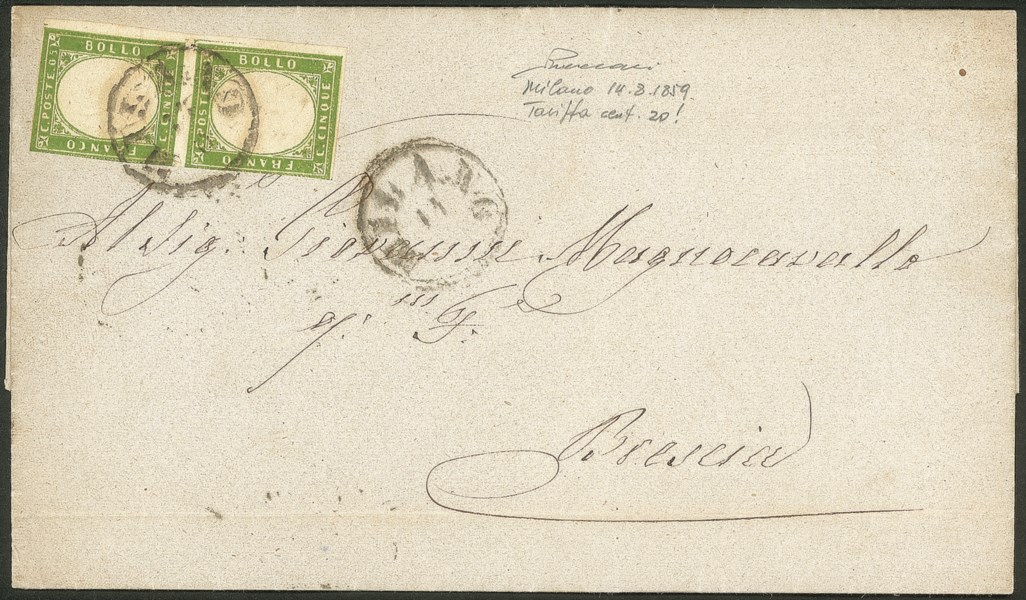 BOLLO
C. POSTE. 05
C. CINQUE
FRANCO
BOLLO
C. POSTE. 05
C. CINQUE
FRANCO
MILANO
MILANO
Milano 14.8.1859.
Tariffa cent. 20!
Al Sig. Giovanni Magnocavallo
q.m F.
Brescia